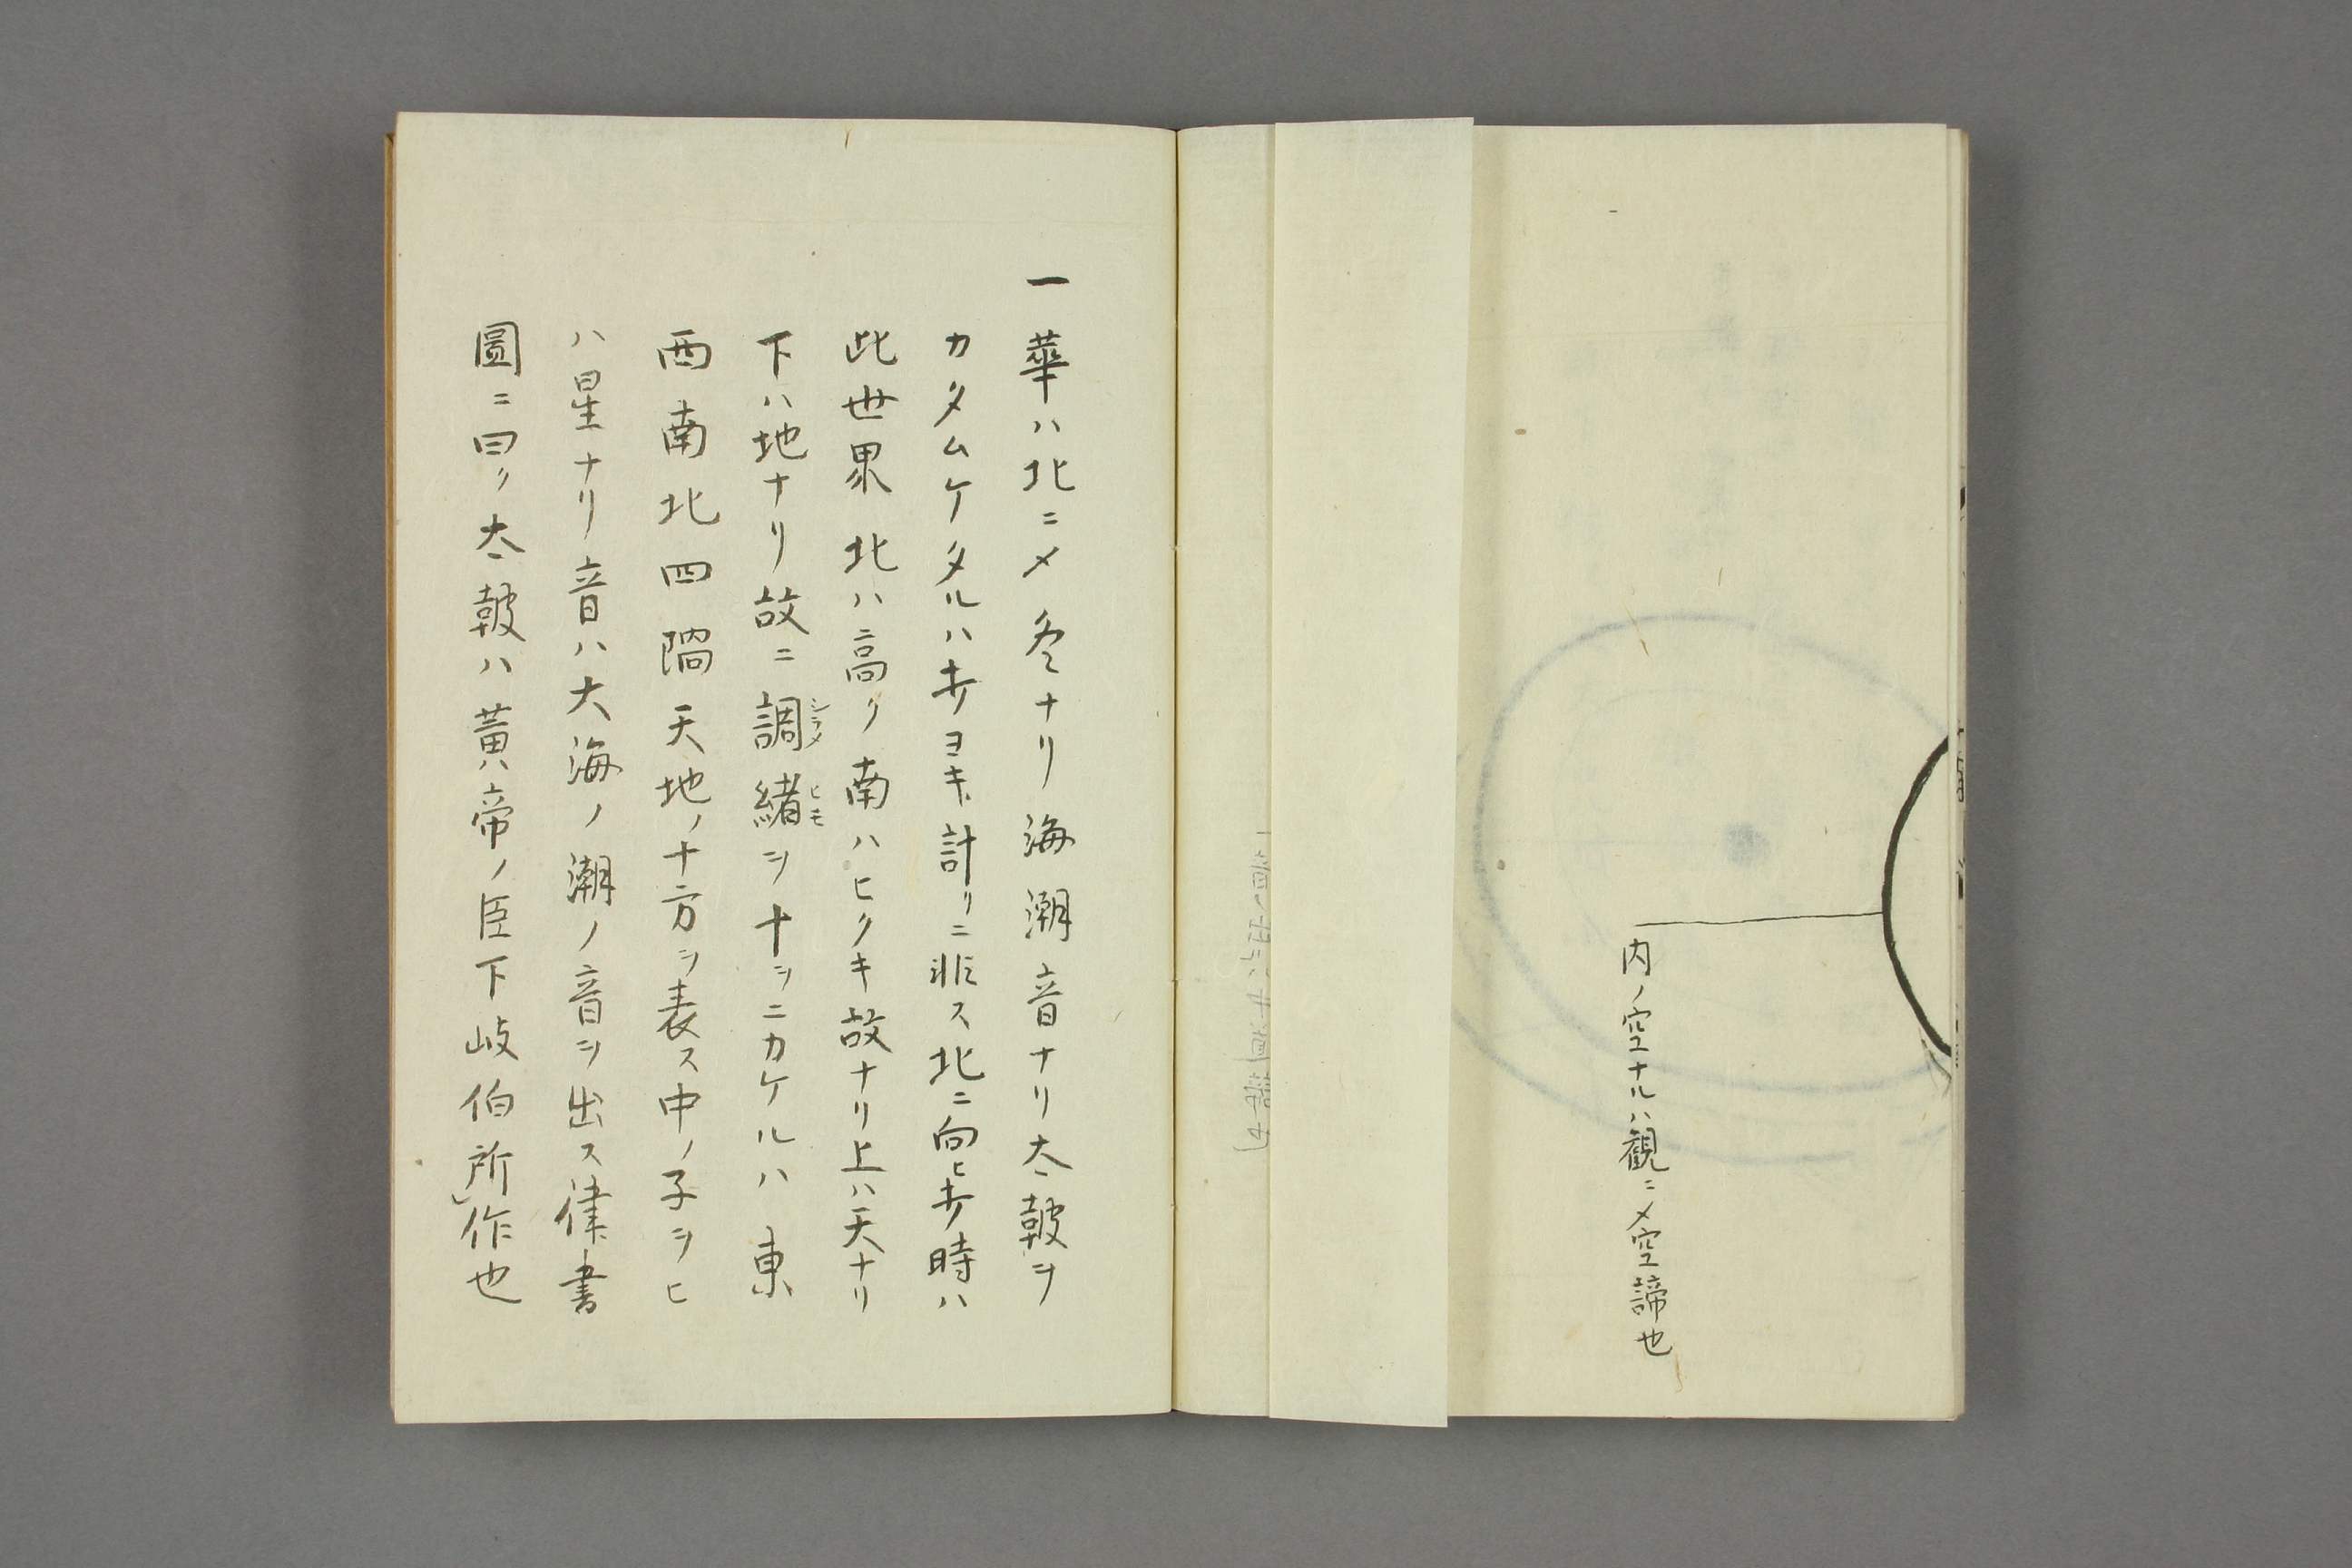 内ノ空ナルハ観ニメ空諦也
一華ハ北ニメ冬ナリ海潮音ナリ太皷ヲ
カタムケタルハ ヨキ計リニ非ス北ニ向ヒ 時ハ
此世界北ハ高ク南ハヒクキ故ナリ上ハ天ナリ
シラメヒモ
下ハ地ナリ故ニ調緒ヲ十ヲニカケルハ東
西南北四隅天地ノ十方ヲ表ス中ノ子ヲヒ
ハ星ナリ音ハ大海ノ潮ノ音ヲ出ス律書
圖ニ曰ク太皷ハ黄帝ノ臣下岐伯所作也